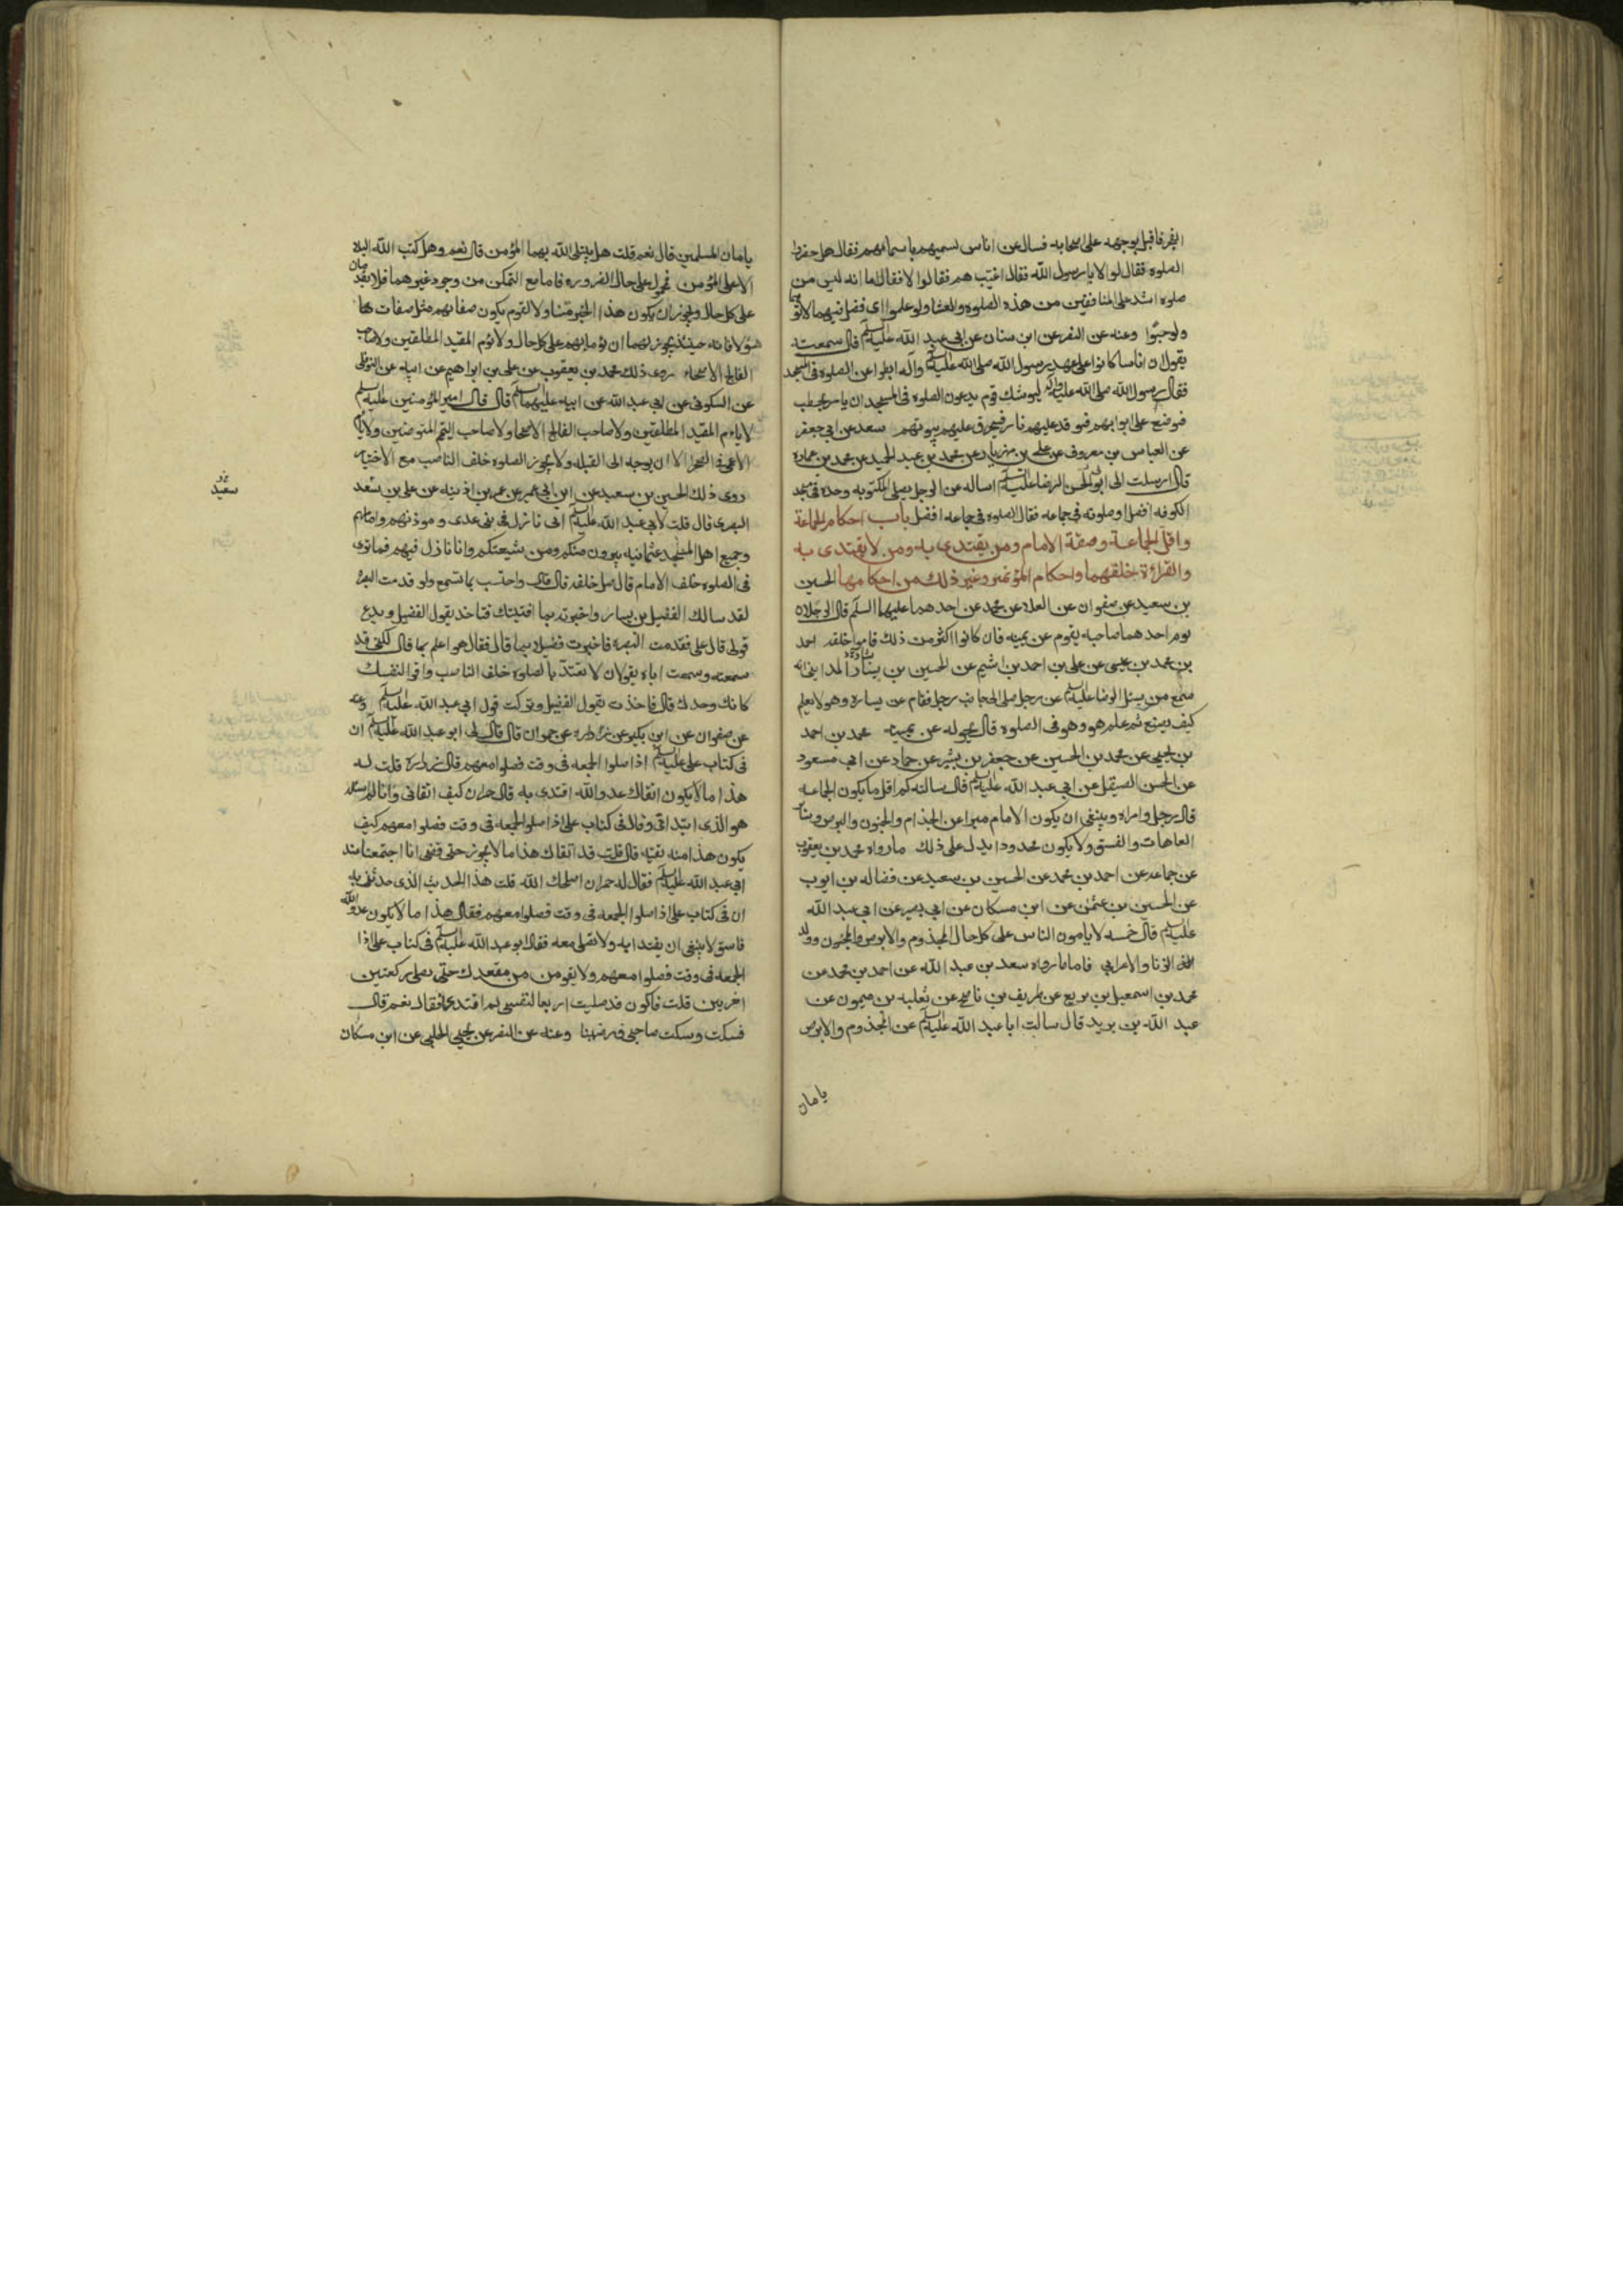 الفجر فاقبل بوجهه على اصحابه فسال عن اناس يسميهم باسمائهم فقال هل حضروا
الصلوه فقالو لا يا رسول الله فقال اغيّب هم فقالوا لا فقال اما انه ليس من
صلوة اشد على المنافقين من هذه الصلوه والعشا ولو علموا اى فضل فيهما لاتوهما
ولو حبوًا وعنه عن النضر عن ابن سنان عن ابى عبد الله عليه السلم قال سمعته
يقول ان اناسا كانوا على عهد رسول الله صلى الله عليه وآله ابطوا عن الصلوه فى المسجد
فقال رسول الله صلى الله عليه وآله ليوشك قوم يدعون الصلوه فى المسجد ان يامر بحطب
فيوضع على ابوابهم فتوقد عليهم نار فيحرق عليهم بيوتهم سعد عن ابى جعفر
عن العباس بن معروف عن على بن مهزيار عن محمد بن عبد الحميد عن محمد بن عماره
قال ارسلت الى ابى الحسن الرضا عليه السلم اساله عن الرجل يصلى المكتوبه وحده فى مسجد
الكوفه افضل او صلوته فى جماعه فقال الصلوه فى جماعه افضل باب احكام الجماعة
واقل الجماعة وصفة الامام ومن يقتدى به ومن لا يقتدى به
والقراءة خلفهما واحكام المؤتمين وغير ذلك من احكامها الحسين
بن سعيد عن صفوان عن العلا عن محمد عن احدهما عليهما السلم قال الرجلان
يوم احدهما صاحبه يقوم عن يمينه فان كانوا اكثر من ذلك قاموا خلفه احمد
بن محمد بن عيسى عن على بن احمد بن اشيم عن الحسين بن يسار المداينى انه
سمع من يسئل الرضا عليه السلم عن رجل صلى الى جانب رجل فقام عن يساره وهو لا يعلم
كيف يصنع ثم علم هو وهو فى الصلوة قال يحوله عن يمينه محمد بن احمد
بن يحيى عن محمد بن الحسين عن جعفر بن بشير عن حماد عن ابى مسعود
عن الحسن الصيقل عن ابى عبد الله عليه السلم قال سالته كم اقل ما يكون الجماعه
قال رجل وامراه وينبغى ان يكون الامام مبرا عن الجذام والجنون والبرص وساير
العاهات والفسق ولا يكون محدودا يدل على ذلك ما رواه محمد بن يعقوب
عن جماعه عن احمد بن محمد عن الحسين بن سعيد عن فضاله بن ايوب
عن الحسين بن عثمن عن ابن مسكان عن ابى بصير عن ابى عبد الله
عليه السلم قال خمسه لا يامون الناس على كل حال المجذوم والابرص والمجنون وولد
الزنا والاعرابى فاما ما رواه سعد بن عبد الله عن احمد بن محمد عن
محمد بن اسمعيل بن بزيع عن ظريف بن ناصح عن ثعلبه بن ميمون عن
عبد الله بن يزيد قال سالت ابا عبد الله عليه السلم عن المجذوم والابرص
يامان
يامان المسلمين قال نعم قلت هل يبتلى الله بهما المؤمن قال نعم وهل كتب الله البلا
الا على المؤمن فمحمول على حال الضروره فاما مع التمكن من وجود غيرهما فلا يقدمان
على كل حال ويجوز ان يكون هذا الخبر متناولا لقوم يكون صفاتهم مثل صفات
هؤلا فانه حينئذ يجوز لهما ان يؤماهم على كل حال ولا يؤم المقيد المطلقين ولا صاحب
الفالج الاصحاء روى ذلك محمد بن يعقوب عن على بن ابراهيم عن ابيه عن النوفلى
عن السكونى عن ابى عبد الله عن ابيه عليهما السلم قال قال امير المؤمنين عليه السلم
لا ياءم المقيد المطلقين ولا صاحب الفالج الاصحا ولا صاحب التيمم المتوضين ولا يام
الاعمى فى الصحرا الا ان يوجه الى القبله ولا يجوز الصلوه خلف الناصب مع الاختيار
روى ذلك الحسين بن سعيد عن ابن ابى عمير عن عمر بن اذينه عن على بن سعد
سعيد
البصرى قال قلت لابى عبد الله عليه السلم انى نازل فى بنى عدى وموذنهم وامامهم
وجميع اهل المسجد عثمانيه يبرون منكم ومن شيعتكم وانا نازل فيهم فما ترى
فى الصلوه خلف الامام قال صل خلفه قال قال واحتسب بما تسمع ولو قدمت البصره
لقد سالك الفضيل بن يسار واخبرته بما افتيتك فتاخذ بقول الفضيل وتدع
قولى قال على فقدمت البصره فاخبرت فضيلا بما قال فقال هو اعلم بما قال لكنى قد
سمعته وسمعت اباه يقولان لا تعتدّ بالصلوه خلف الناصب واقرا لنفسك
كانك وحدك قال فاخذت بقول الفضيل وتركت قول ابى عبد الله عليه السلم وعنه
عن صفوان عن ابن بكير عن زراره عن حمران قال قال لى ابو عبد الله عليه السلم ان
فى كتاب على عليه السلم اذا صلوا الجمعه فى وقت فصلوا معهم قال زرارة قلت له
هذا ما لا يكون اتقاك عدو الله اقتدى به قال حمران كيف اتقانى وانا لم اسئله
هو الذى ابتدانى وقال فى كتاب على اذا صلوا الجمعه فى وقت فصلوا معهم كيف
يكون هذا منه تقيّه قال قلت قد اتقاك هذا ما لا يجوز حتى قضى انا اجتمعنا عند
ابى عبد الله عليه السلم فقال له حمران اصلحك الله قلت هذا الحديث الذى حدثتنى به
ان فى كتاب على اذا صلوا الجمعه فى وقت فصلوا معهم فقال هذا ما لا يكون عدو الله
فاسق لا ينبغى ان يقتدا به ولا نصلى معه فقال ابو عبد الله عليه السلم فى كتاب على اذا
الجمعه فى وقت فصلوا معهم ولا يقومن من مقعدك حتى تصلى ركعتين
اخريين قلت فاكون قد صليت اربعا لنفسى لم اقتد به فقال نعم قال
فسكت وسكت صاحبى ورضينا وعنه عن النضر عن يحيى الحلبى عن ابن مسكان